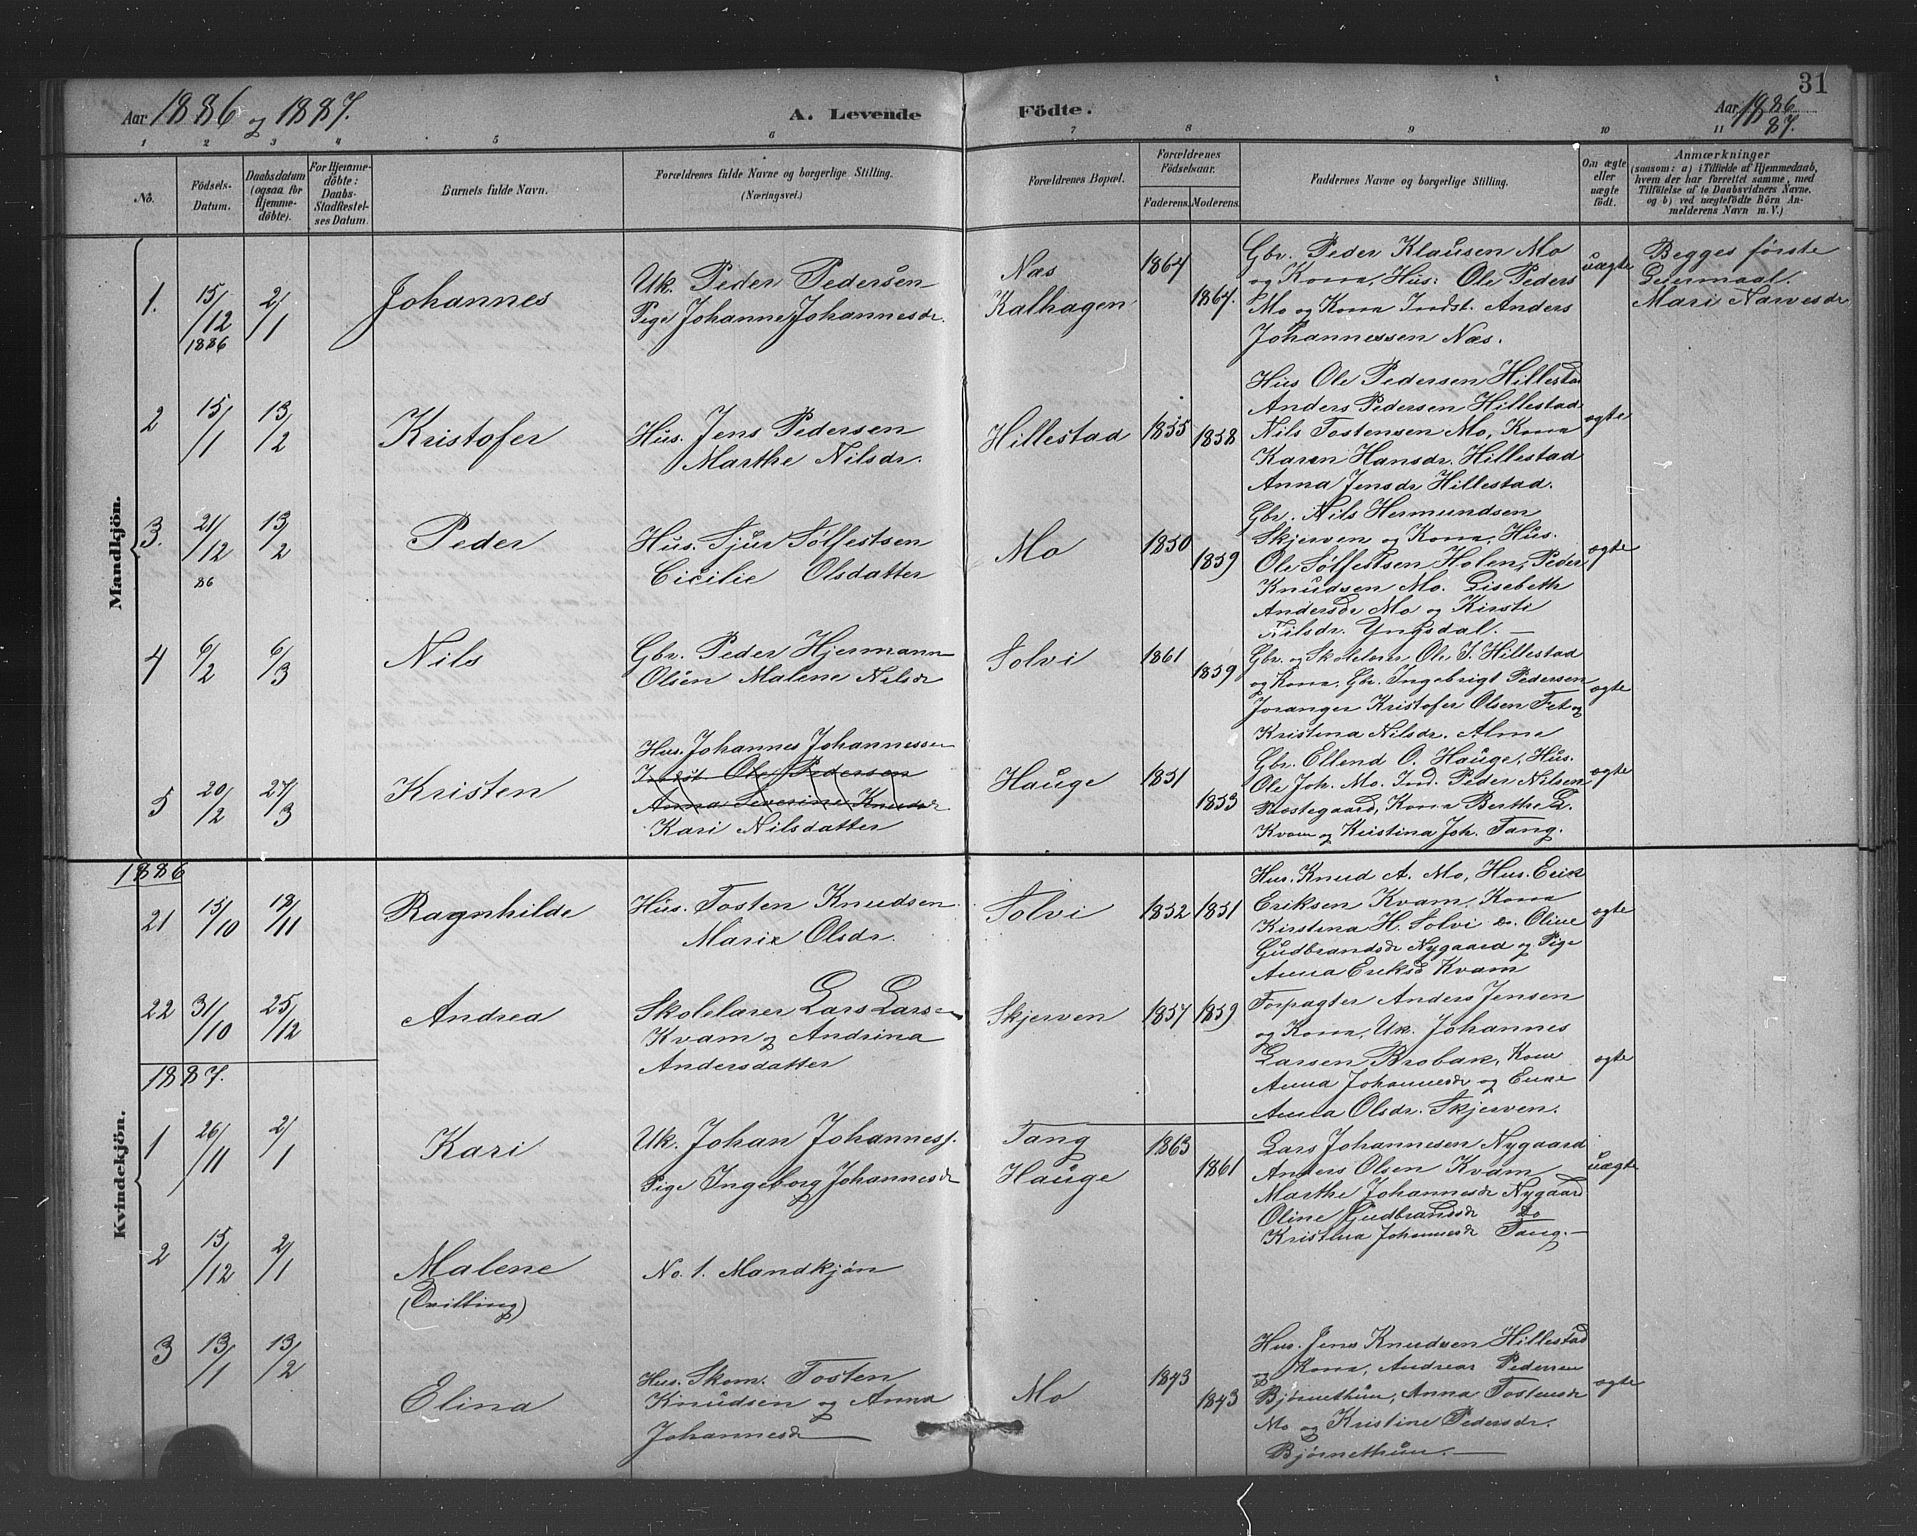 31
Aar 1886 og 1887. A. Levende Födte. Aar 1886 87.
1 2 3 4 5 6 7 8 9 10 11
No. Födsels-Datum. Daabsdatum (ogsaa for Hjemme-döbte). For Hjemme-döbte: Daabs-Stadfæstel-ses Datum. Barnets fulde Navn. Forældrenes fulde Navne og borgerlige Stilling. (Næringsvei.) Forældrenes Bopæl. Forældrenes Födselsaar. Faderens. Moderens. Faddernes Navne og borgerlige Stilling. Om ægte eller uægte födt. Anmærkninger
(saasom: a) i Tilfælde af Hjemmedaab,
hvem der har forrettet samme, med
Tilföielse af to Daabsvidners Navne.
og b) ved uægtefödte Börn An-
melderens Navn m. V.)
Mandkjön.
1. 15/12 1886 2/1 Johannes
Uk. Peder Pedersen
Pige Johanne Johannesdr.
Næs
Kalhagen
1864 1864.
Gbr. Peder Klausen Mo
og Kona, Hus: Ole Peders
Mo og Kona Indst. Anders
Johannessen Næs.
uægte
Begges første
Leiermaal.
Mari Narvesdr
2 15/1 13/2 Kristofer
Hus. Jens Pedersen
Marthe Nilsdr.
Hillestad
1855 1858
Hus Ole Pedersen Hillestad
Anders Pedersen Hillestad
Nils Tostensen Mo, Kona
Karen Hansdr. Hillestad
Anna Jensdr Hillestad.
ægte
3. 21/12 86 13/2 Peder
Hus. Sjur Sølfestsen
Cicilie Olsdatter
Mo
1850 1859
Gbr. Nils Hermundsen
Skjerven og Kona, Hus.
Ole Sølfestsen Holen, Peder
Knudsen Mo. Lisebeth
Andersdr Mo og Kirsti
Nilsdr. Yngsdal.
ægte
4 6/2 6/3 Nils
Gbr. Peder Hjermann
Olsen Malene Nilsdr
Solvi
1861 1859
Gbr. og Skolelærer Ole J. Hillestad
og Kona, Gbr. Ingebrigt Pedersen
Joranger Kristofer Olsen Fet og
Kristina Nilsdr. Alme
ægte
5 20/2 27/3 Kristen
Hus. Johannes Johannessen
Indst Ole Pedersen
Anna Severine Knudsdr
Kari Nilsdatter
Hauge
1851 1853
Gbr. Ellend O. Hauge, Hus.
Ole Joh. Mo. Ind. Peder Nilsen
Prostegaard, Kona Berthe L.
Kvam og Kristina Joh. Tang.
ægte
Kvindekjön.
1886
21 15/10 18/11 Ragnhilde
Hus. Tosten Knudsen
Marie Olsdr.
Solvi
1852 1851
Hus. Knud A. Mo, Hus. Erik
Eriksen Kvam, Kona
Kirstena H. Solvi Oline
Gudbrandsdr Nygaard og Pige
Anna Eriksd Kvam
ægte
22 31/10 25/12 Andrea
Skolelærer Lars Lars-
Kvam og Andrina
Andersdatter
Skjerven
1857 1859
Forpagter Anders Jensen
og Kona, Uk. Johannes
Larsen Brobak, Kone
Anna Johannesdr og Enke
Anna Olsdr. Skjerven.
ægte
1887.
1 26/11 2/1 Kari
Uk. Johan Johanness.
Pige Ingeborg Johannesdr
Tang
Hauge
1863 1861
Lars Johannesen Nygaard
Anders Olsen Kvam
Marthe Johannesdr Nygaard
Oline Gudbrandsdr Do
Kristina Johannesdr Tang.
uægte
2 15/12 2/1 Malene
(Tvilling)
No. 1. Mandkjön
3 13/1 13/2 Elina
Hus. Skom. Tosten
Knudsen og Anna
Johannesdr
Mo
1843 1843
Hus. Jens Knudsen Hillestad
og Kona, Andreas Pedersen
Bjørnethun, Anna Tostensdr
Mo og Kristine Pedersdr.
Bjørnethun.
ægte